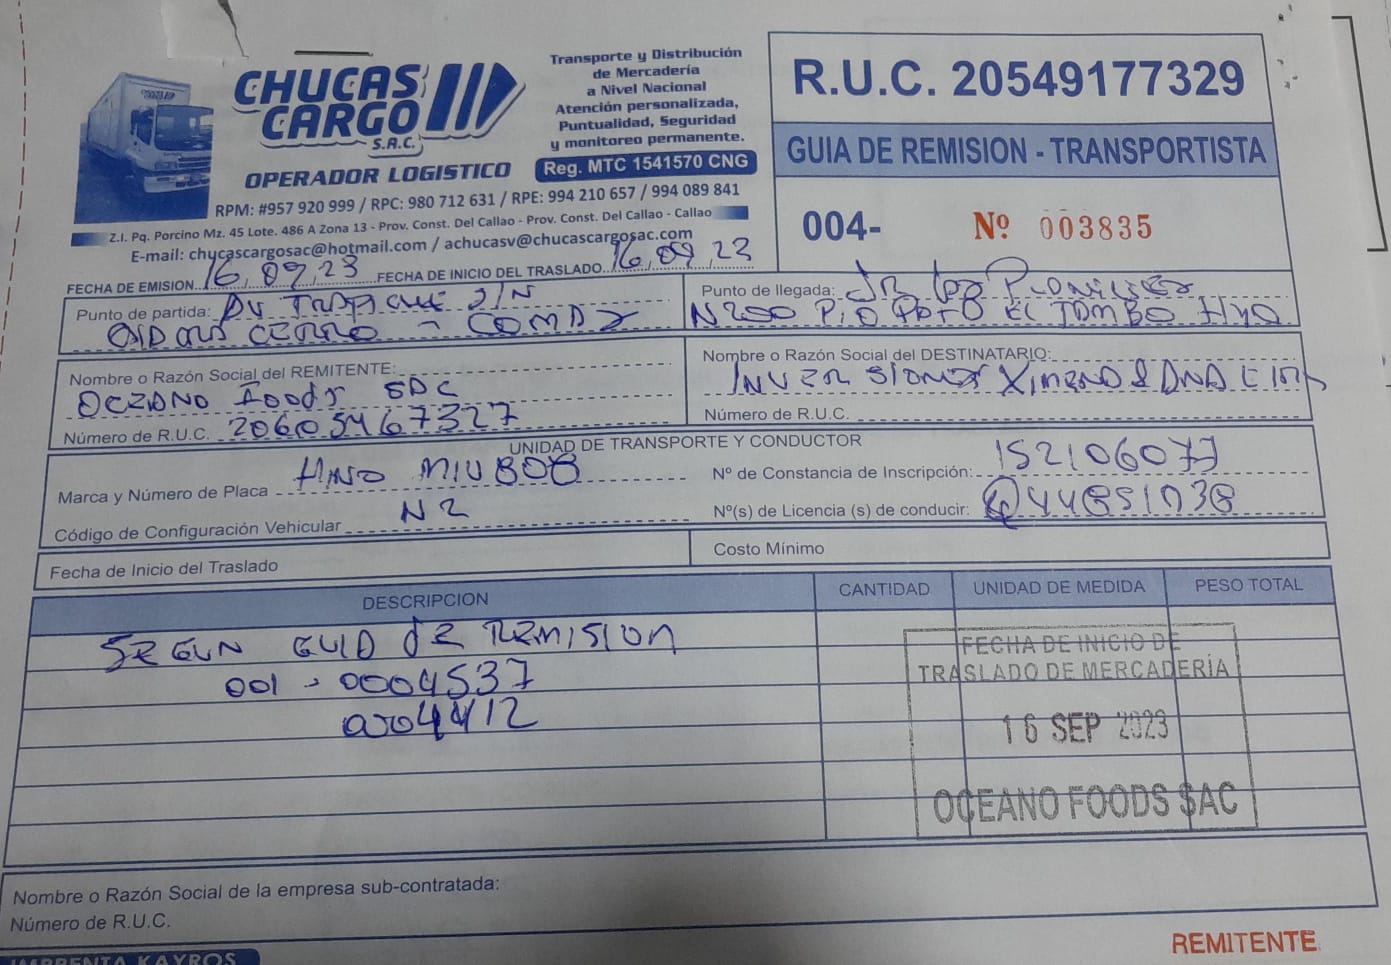 CHUCAS
CARGO
S.A.C.
OPERADOR LOGISTICO
Transporte y Distribución
de Mercadería
a Nivel Nacional
Atención personalizada,
Puntualidad, Seguridad
y monitoreo permanente.
Reg. MTC 1541570 CNG
RPM: #957 920 999 / RPC: 980 712 631 / RPE: 994 210 657 / 994 089 841
Z.I. Pq. Porcino Mz. 45 Lote. 486 A Zona 13 - Prov. Const. Del Callao - Prov. Const. Del Callao - Callao
E-mail: chucascargosac@hotmail.com / achucasv@chucascargosac.com
R.U.C. 20549177329
GUIA DE REMISION - TRANSPORTISTA
004- Nº 003835
FECHA DE EMISION 16,09,23 FECHA DE INICIO DEL TRASLADO 16,09,23
Punto de partida: AV S/N
CERRO - COMAS
Punto de llegada: Jr los
N200 PIO PATA EL TAMBO HYO
Nombre o Razón Social del REMITENTE:
OCEANO FoodS SAC
Número de R.U.C. 20605467327
Nombre o Razón Social del DESTINATARIO:
INVERSIONES XIMENA & ANA
Número de R.U.C.
UNIDAD DE TRANSPORTE Y CONDUCTOR
Marca y Número de Placa HINO
Nº de Constancia de Inscripción:
Código de Configuración Vehicular N2
Nº(s) de Licencia (s) de conducir:
Fecha de Inicio del Traslado
Costo Mínimo
DESCRIPCION CANTIDAD UNIDAD DE MEDIDA PESO TOTAL
SEGUN GUIA dE REMISION
001 - 0004537
0004412
FECHA DE INICIO DE
TRASLADO DE MERCADERÍA
16 SEP 2023
OCEANO FOODS SAC
Nombre o Razón Social de la empresa sub-contratada:
Número de R.U.C.
IMPRENTA KAYROS
REMITENTE